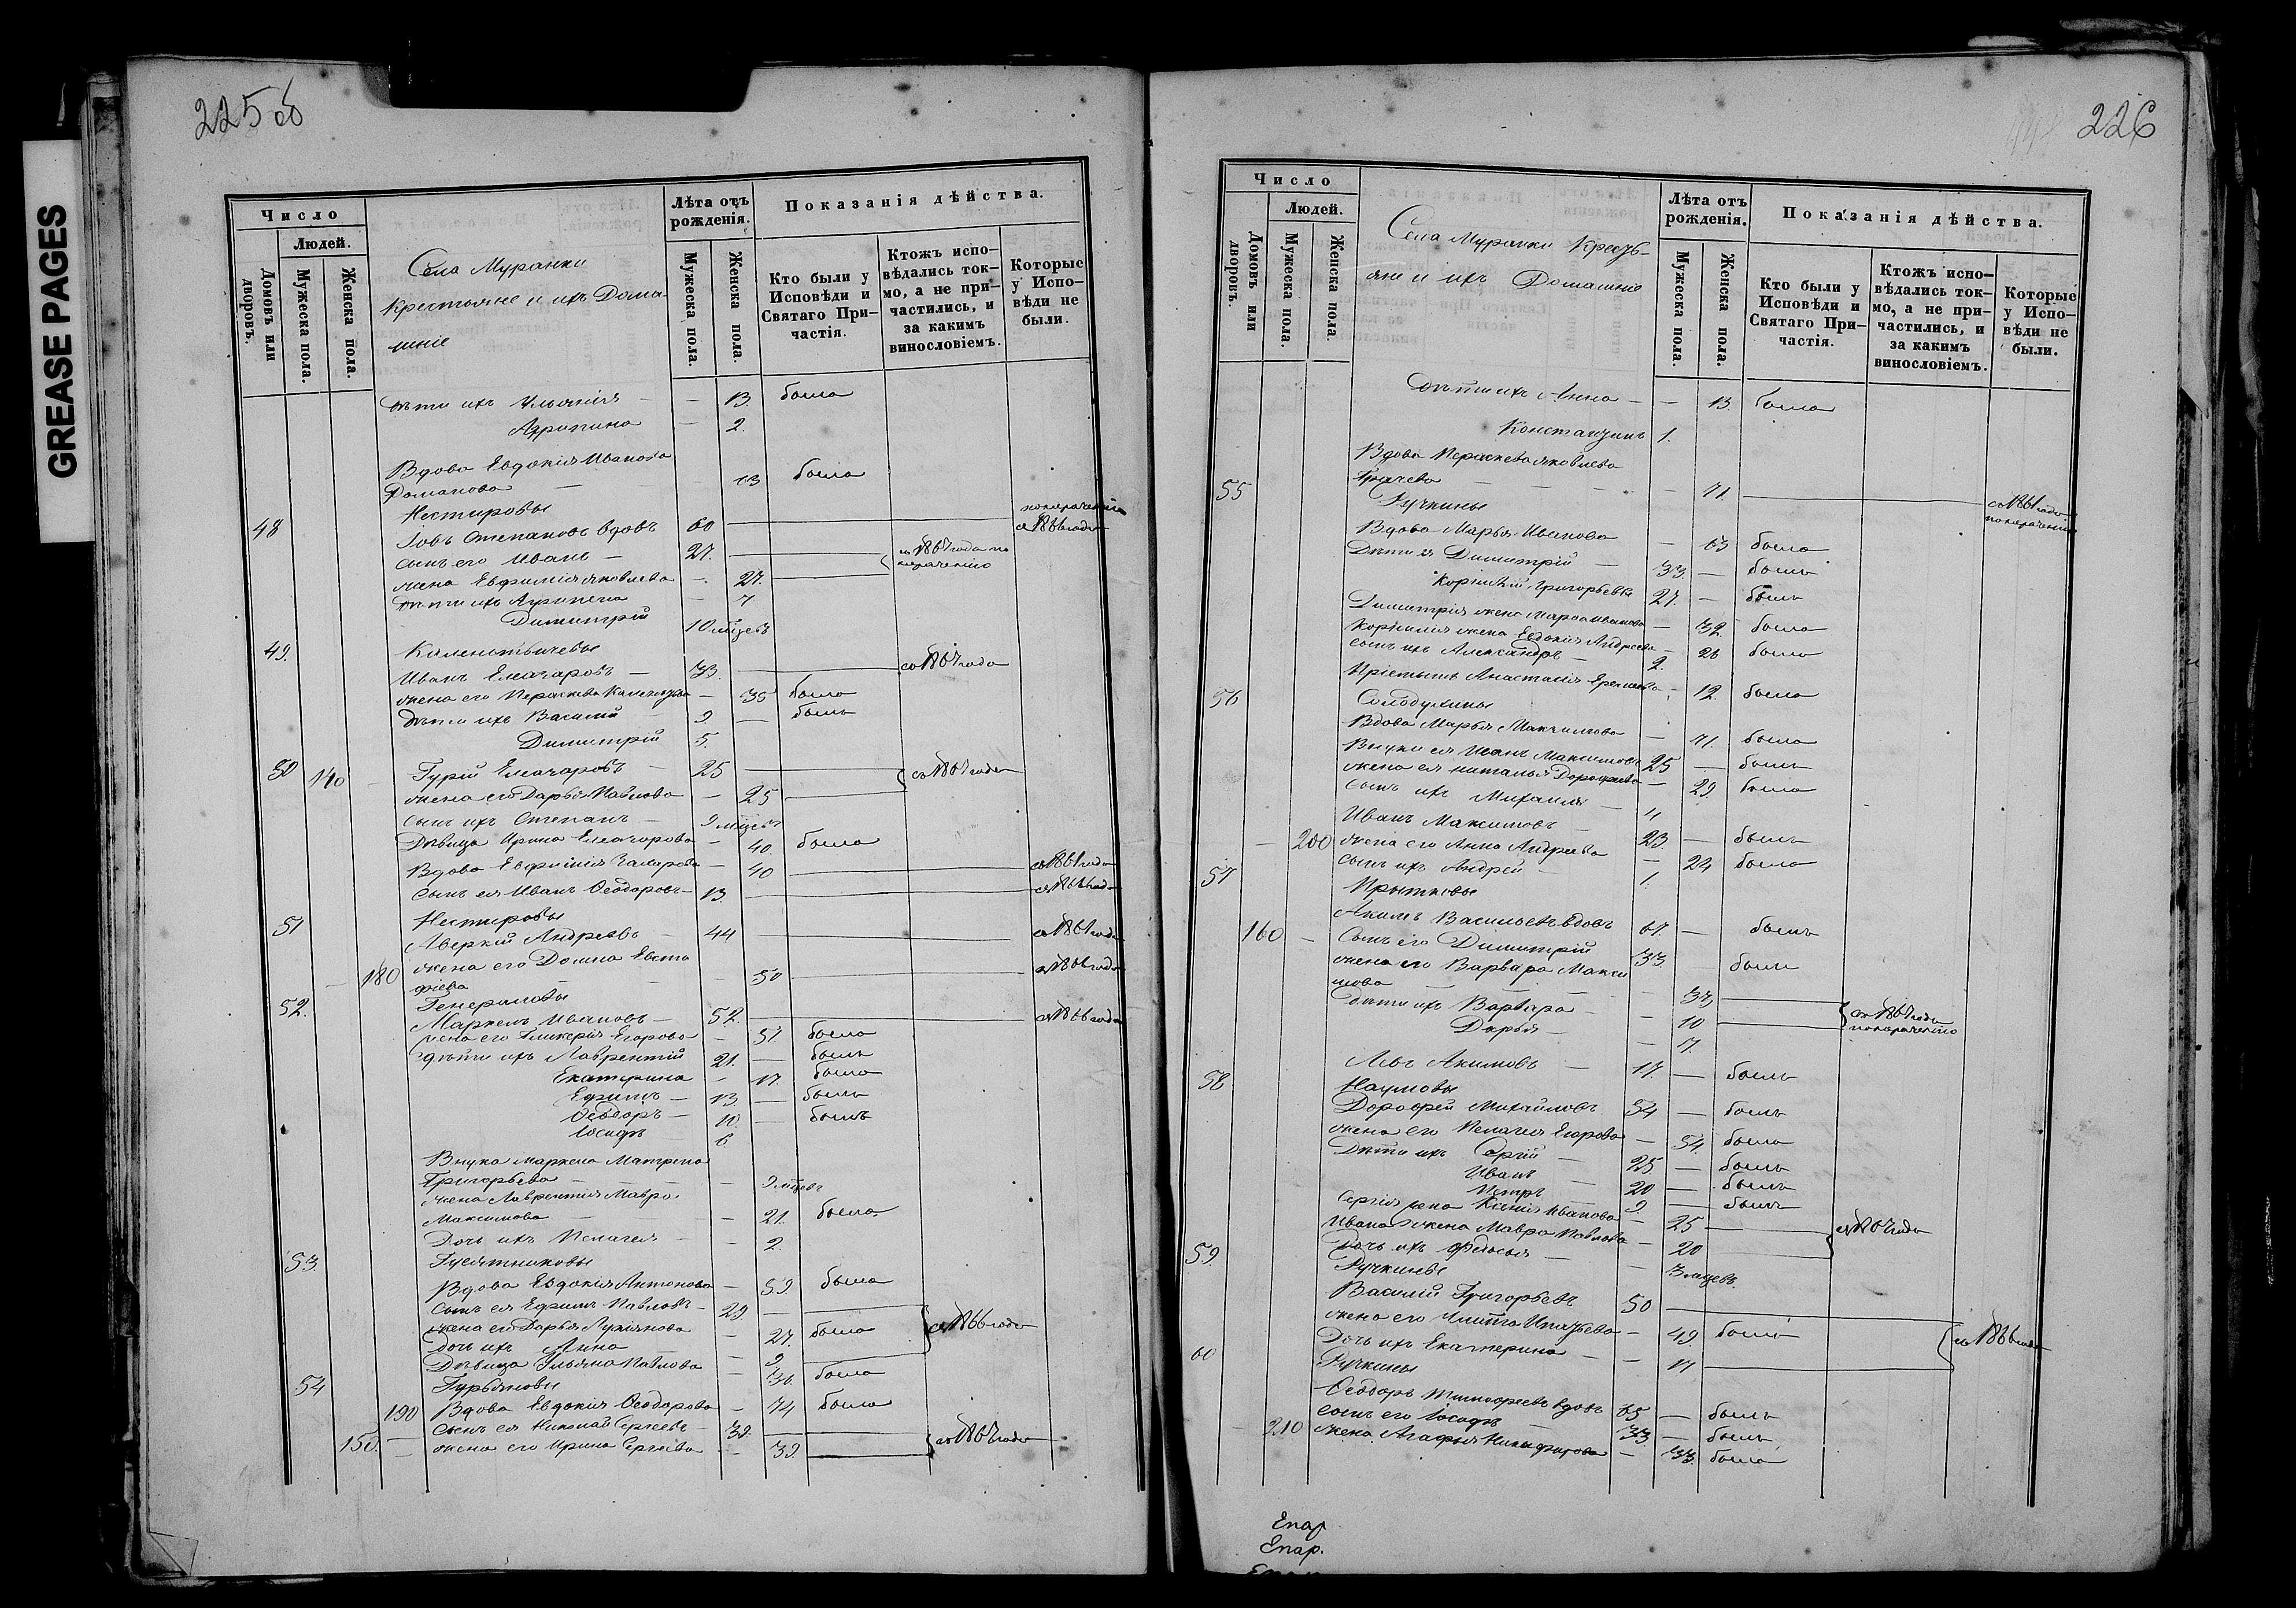 GREASE PAGES
225 об
Число
Людей.
Домовъ или дворовъ.
Мужеска пола.
Женска пола.
Села Муранки
крестьяне и ихъ Дома-
шніе
Лѣта отъ рожденія.
Мужеска пола.
Женска пола.
Показанія дѣйства.
Кто были у Исповѣди и Святаго При-частія.
Ктожъ испо-вѣдались ток-мо, а не при-частились, и за какимъ винословіемъ.
Которые у Испо-вѣди не были.
дѣти ихъ Ульянія — — 13. была
Агрипина — 2.
Вдова Евдокія Иванова
Романова — — 63 была
48 Нестеровы
Іовъ Степановъ вдовъ 60 — съ 1866 года
сынъ его Иванъ — 27. — съ 1867 года по нераченію
жена Евфимія Яковлева — 27. —
дѣти ихъ Агрипена — 7
Димитрій 10 мѣцевъ
49.
Иванъ Елеазаровъ — 33. — съ 1867 года
жена его Параскева — 35 была
дѣти ихъ Василій — 9 — былъ
Димитрій 5.
50 140 — Гурій Елеазаровъ — 25 — съ 1867 года
жена его Дарья Павлова — 25 —
сынъ ихъ Степанъ — 9 мѣцевъ
Дѣвица Ирина Елеазарова — 40 была
Вдова Евфимія Захарова — 40 — съ 1861 года
сынъ ея Иванъ Ѳеодоровъ — 13. — съ 1866 года
51 Нестеровы
Аверкій Андреевъ — 44 — съ 1861 года
— 180 жена его Домна Евста
фіева — — 50 — съ 1866 года
52. Генераловы
Маркелъ Ивановъ — 52. — съ 1866 года
жена его Гликерія Егорова — 51 была
дѣти ихъ Лаврентій 21. — былъ
Екатерина — 17. была
Ефимъ — 13. — былъ
Ѳеодоръ — 10. — былъ
Іосифъ 6
Внука Маркела Матрена
Григорьева — — 9 мѣцевъ
жена Лаврентія Мавра
Максимова — — 21. была
Дочь ихъ Пелагея — — 2.
53. Гусятниковы
Вдова Евдокія Антонова — 59. была
сынъ ея Ефимъ Павловъ — 29. —
жена его Дарья Лукіянова — 27. была съ 1866 года
дочь ихъ Анна — 9 —
Дѣвица Ульяна Павлова — 36. была
54 Гурьяновы
190 Вдова Евдокія Ѳеодорова — 74 была
сынъ ея Николай Сергѣевъ — 39. —
150. — жена его Ирина Сергѣева — 39. — съ 1867 года
226
Число
Людей.
Домовъ или дворовъ.
Мужеска пола.
Женска пола.
Села Муранки Кресть-
яне и ихъ Домашніе
Лѣта отъ рожденія.
Мужеска пола.
Женска пола.
Показанія дѣйства.
Кто были у Исповѣди и Святаго При-частія.
Ктожъ испо-вѣдались ток-мо, а не при-частились, и за какимъ винословіемъ.
Которые у Испо-вѣди не были.
Дѣти ихъ Анна — — 13. была
Константинъ 1.
Вдова Параскева Яковлева
Грачева — — 71. — съ 1861 года по нераченію
55 Ручкины
Вдова Марья Иванова — 63 была
Дѣти ея Димитрій — 33. — былъ
Корнилій Григорьевы 27. — былъ
Димитрія жена Марфа Иванова — 32. была
Корнилія жена Евдокія Андреева — 26 была
сынъ ихъ Александръ — 2.
Анастасія — 12. была
56 Солодухины
Вдова Марья Максимова — 71. была
Внуки ея Иванъ Максимовъ 25 — былъ
жена его Наталья Дорофеева — 29. была
сынъ ихъ Михаилъ — 4
Иванъ Максимовъ — 23 — былъ
— 200 жена его Анна Андреева — 24 была
сынъ ихъ Андрей — 1.
57 Прытковы
Акимъ Васильевъ вдовъ 67. — былъ
160 — Сынъ его Димитрій 33. былъ
жена его Варвара Макси
мова — — 37 —
дѣти ихъ Варвара — — 10 — съ 1867 года по нераченію
Дарья — — 7.
Левъ Акимовъ — 17. — былъ
58 Наумовы
Дорофей Михайловъ 54 — былъ
жена его Пелагея Егорова — 54. была
Дѣти ихъ Сергій — 25 — былъ
Иванъ — 20 — былъ
Петръ — 9 — былъ
Сергія жена Ксенія Иванова — 25 — съ 1867 года
Ивана жена Мавра Павлова — 20 —
Дочь ихъ — — 3 мѣцевъ
59. Ручкины
Василій Григорьевъ 50 —
жена его Игнатьева — 49. была съ 1866 года
Дочь ихъ Екатерина — — 11 —
60 Ручкины
Ѳеодоръ Тимофеевъ вдовъ 65 — былъ
сынъ его Іосифъ — 33. — былъ
— 210 жена Агафья Никифорова — 33. была
Епар
Епар.